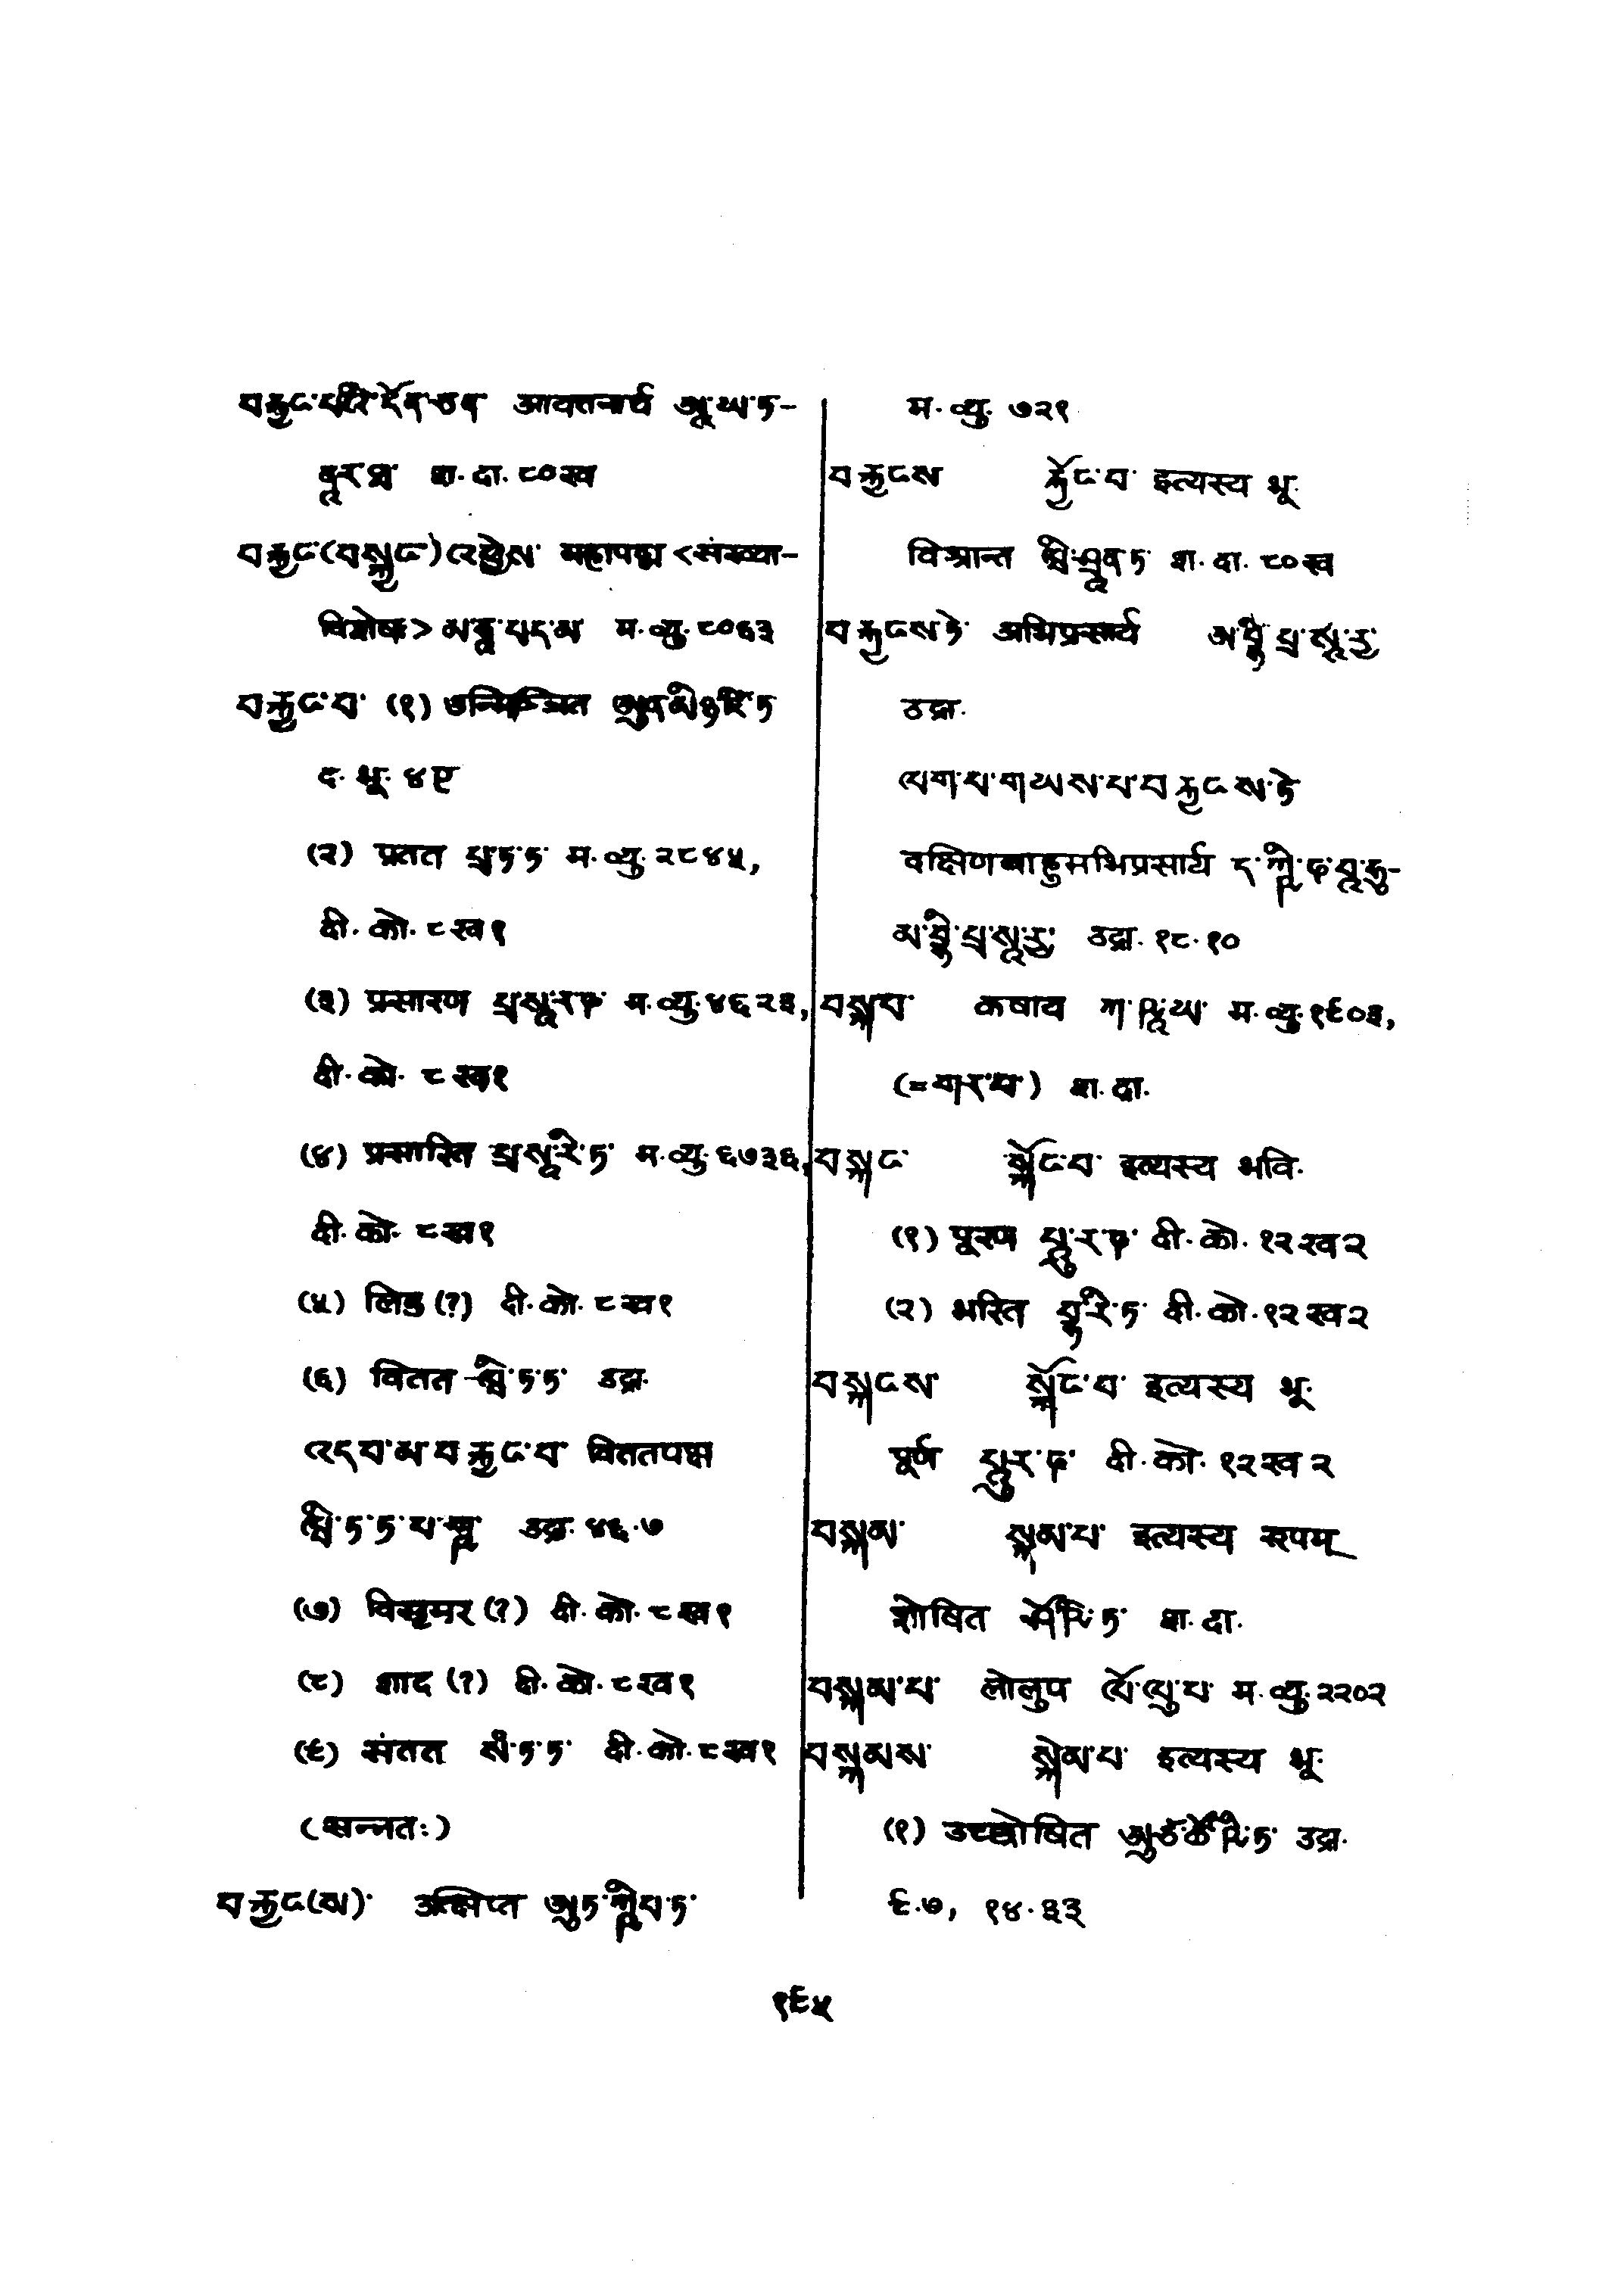 བརྐྱང་པའི་དོན་ཅན་ आयतनार्थ ཨཱ་ཡ་ཏ-
ནཱར་ཐ་ श. दा. ८०ख
བརྐྱང་(བསྐྱང་)འཁྱེས་ महापद्म <संख्या-
विशेषः> མ་ཧཱ་པད་མ་ म. व्यु. ८०६३
བརྐྱང་བ་ (१)
द. भू. ४ए
(२) प्रतत པྲ་ཏ་ཏ་ म. व्यु. २८४५,
दी. को. ८ख१
(३) प्रसारण པྲ་སཱ་ར་ཎ་ म. व्यु. ४६२३,
दी. को. ८ख१
(४) प्रसारित པྲ་སཱ་རི་ཏ་ म. व्यु. ६७३६,
दी. को. ८ख१
(५) लिङ (?) दी. को. ८ख१
(६) वितत ཝི་ཏ་ཏ་ उद्रा.
འདབ་མ་བརྐྱང་བ་ विततपक्ष
ཝི་ཏ་ཏ་པ་ཀྵ་ उद्रा. ४६.७
(७) विसृमर (?) दी. को. ८ख१
(८) शाद (?) दी. को. ८ख१
(९) संतत སཾ་ཏ་ཏ་ दी. को. ८ख१
(सन्नतः)
བརྐྱང་(མ)་ उत्क्षिप्त ཨུཏ་ཀྵིཔ་ཏ་
म. व्यु. ७२१
བརྐྱངས རྐྱོང་བ་ इत्यस्य भू.
विश्रान्त ཝི་ཤྲཱན་ཏ་ श. दा. ८०ख
བརྐྱངས་ཏེ་ अभिप्रसार्य ཨ་བྷི་པྲ་སཱ་རྱ་
उद्रा.
ལག་པ་གཡས་པ་བརྐྱངས་ཏེ
दक्षिणबाहुमभिप्रसार्य ད་ཀྵི་ཎ་བཱ་ཧུ-
མ་བྷི་པྲ་སཱ་རྱ་ उद्रा. १८.१०
བསྐ་བ་ कषाय ཀ་ཥཱ་ཡ་ म. व्यु. १९०३,
श. दा.
བསྐང་ སྐོང་བ་ इत्यस्य भवि.
(१) पूरण པཱུ་ར་ཎ་ दी. को. १२ख२
(२) भरित བྷ་རི་ཏ་ दी. को. १२ख२
བསྐངས་ སྐོང་བ་ इत्यस्य भू.
पूर्ण པཱུར་ཎ་ दी. को. १२ख२
བསྐམ་ སྐམ་པ་ इत्यस्य रूपम्
शोषित ཤོ་ཥི་ཏ་ श. दा.
བསྐམ་པ་ लोलुप ལོ་ལུ་པ་ म. व्यु. २२०२
བསྐམས་ སྐེམ་པ་ इत्यस्य भू.
(१) उच्छोषित ཨུཙ་ཚོ་ཥི་ཏ་ उद्रा.
९.७, १४.३३
१९५